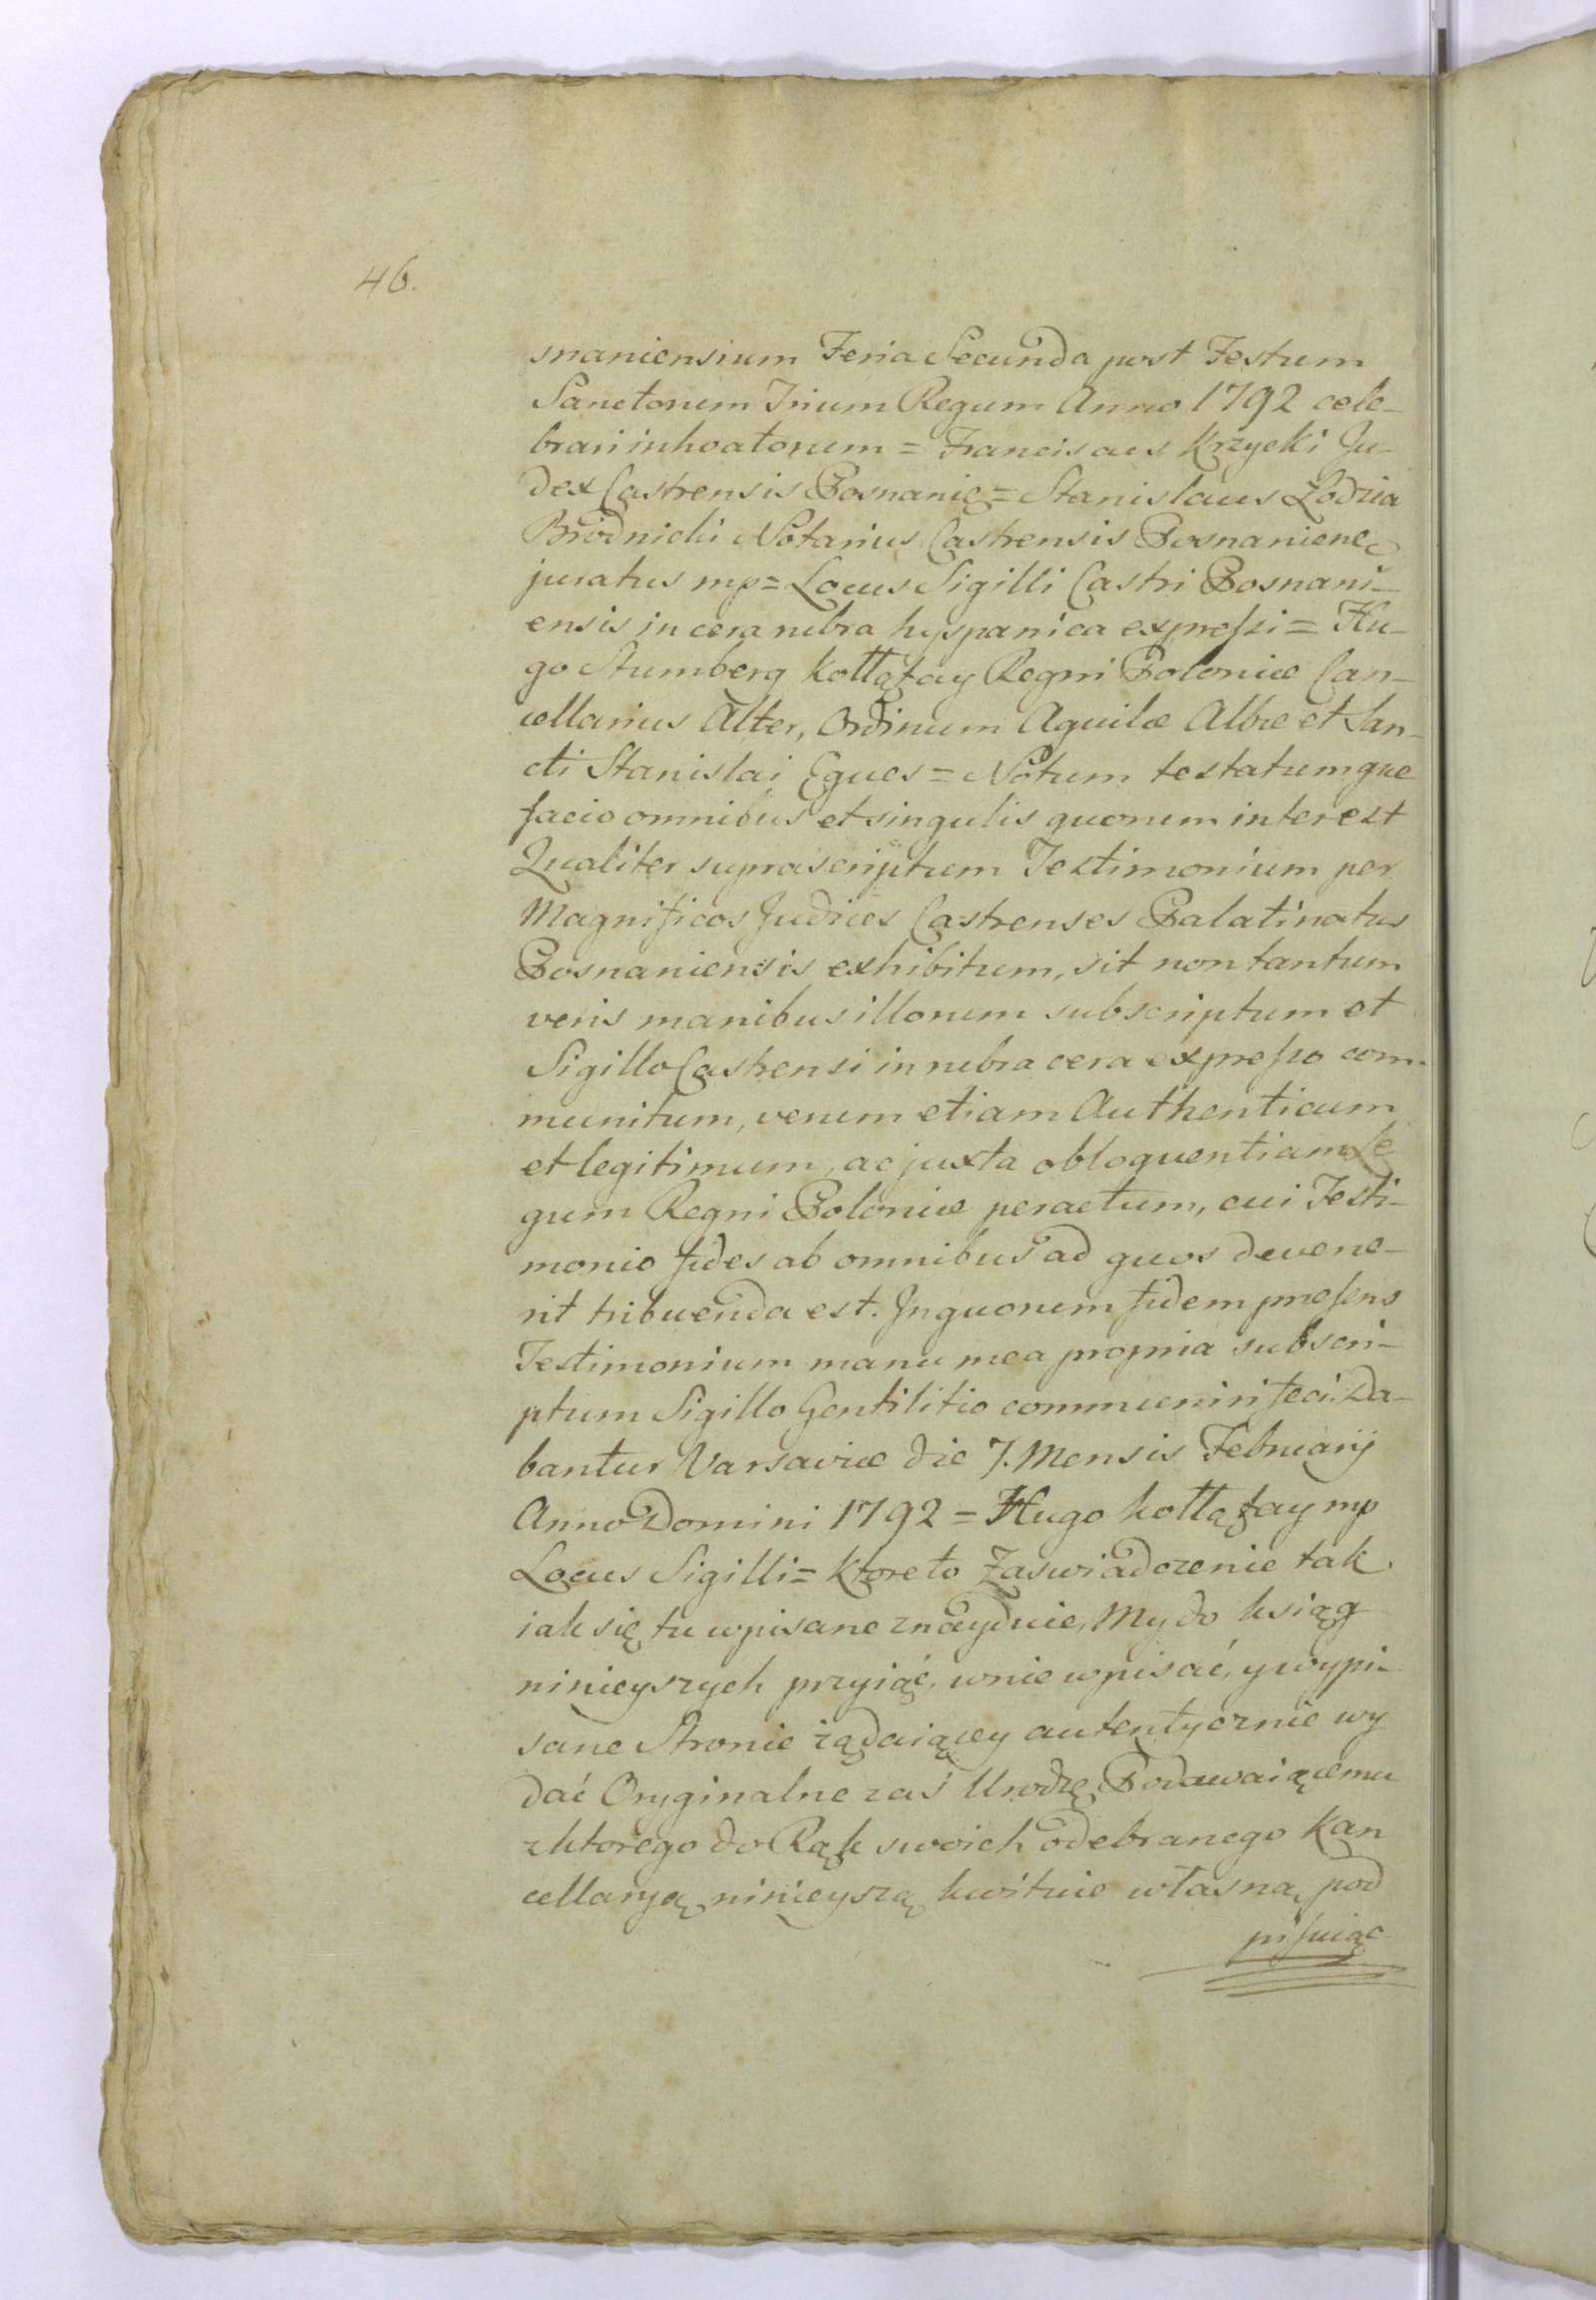 46.
snaniensium Feria Secunda post Festum
Sanctorum Trium Regum Anno 1792 cele-
brari inhoatorum = Franciscus Krzycki Ju-
dex Castrensis Posnanię = Stanislaus Łodzia
Brodnicki Notarius Castrensis Posnanienc
juratus mp = Locus Sigilli Castri Posnani-
ensis in cera rubra hyspanica expreſsi = Hu-
go Stumberg Kołłątay Regni Poloniæ Can-
cellarius Alter, Ordinum Aquilæ Albæ et San-
cti Stanislai Eques = Notum testatumque
facio omnibus et singulis quorum interest
Qualiter suprascriptum Testimonium per
Magnificos Judices Castrenses Palatinatus
Posnaniensis exhibitum, sit non tantum
veris manibus illorum subscriptum et
Sigillo Castrensi in rubra cera expreſso com-
munitum, verum etiam Authenticum
et legitimum, ac juxta obloquentiam Le
gum Regni Poloniæ peractum, cui Testi-
monio fides ab omnibus ad quos devene-
rit tribuenda est. Inquorum fidem præsens
Testimonium manu mea propria subscri-
ptum Sigillo Gentilitio communiri feci. Da-
bantur Varsaviæ die 7. Mensis Februarij
Anno Domini 1792 = Hugo Kołłątay mp
Locus Sigilli = Ktoreto Zaswiadczenie tak
iak się tu wpisane znayduie, My do ksiąg
ninieyszych przyiąć, wnie wpisać, y wypi-
sane Stronie żądaiącey autentycznie wy
dać Oryginalne zaś Urodzę Podawaiącemu
z ktorego do Rąk swoich odebranego Kan
cellaryą ninieyszą kwituie własną pod
piſuiąc